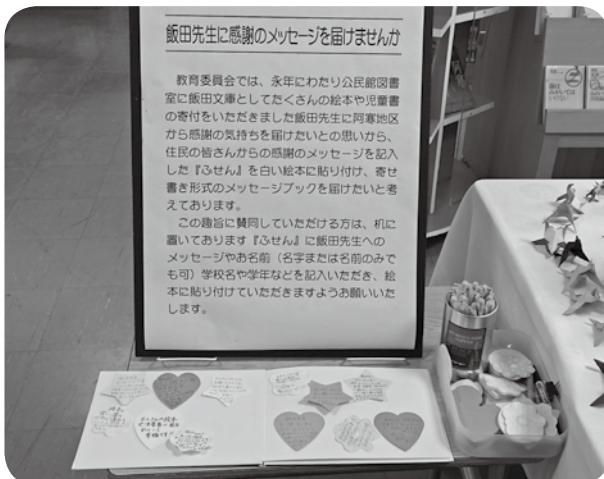 飯田先生に感謝のメッセージを届けませんか
教育委員会では、永年にわたり公民館図書
室に飯田文庫としてたくさんの絵本や児童書
の寄付をいただきました飯田先生に阿寒地区
から感謝の気持ちを届けたいとの思いから、
住民の皆さんからの感謝のメッセージを記入
した『ふせん』を白い絵本に貼り付け、寄せ
書き形式のメッセージブックを届けたいと考
えております。
この趣旨に賛同していただける方は、机に
置いております『ふせん』に飯田先生への
メッセージやお名前（名字または名前のみで
も可）学校名や学年などを記入いただき、絵
本に貼り付けていただきますようお願いいた
します。